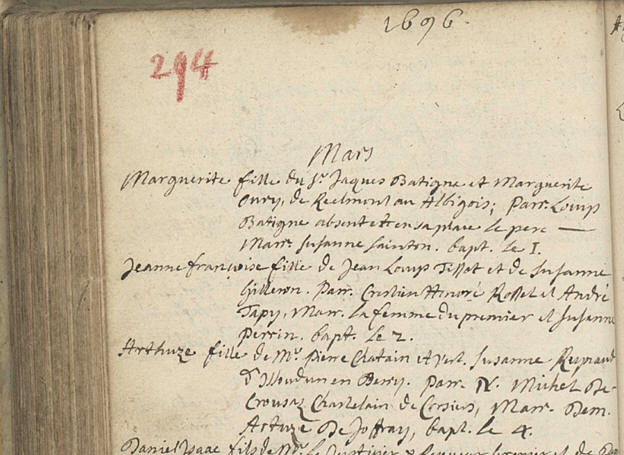 1696.
294
Mars
Marguerite fille du Sr. Jaques Batigne et Marguerite
Oury, de Reelmont au Albigois; Parr. Louys
Batigne absent et en sa place le pere —
Marr. Susanne Sainton. bapt. le 1.
Jeanne françoise fille de Jean Loup Tissot et de Susanne
Gilleron. Parr. Cristien Honoré Rosset et André
Tapy, Marr. la femme du premier et Susanne
Perrin. bapt. le 2.
Arthuze fille de Mr. Pierre Chatain et Susanne
D'Issoudun en Berry. Parr. N. Michel De
Crousaz Chastelain de Corsier, Marr. Dem.
Artuze De Joffray, bapt. le 4.
Daniel Isaac fils de Mr.